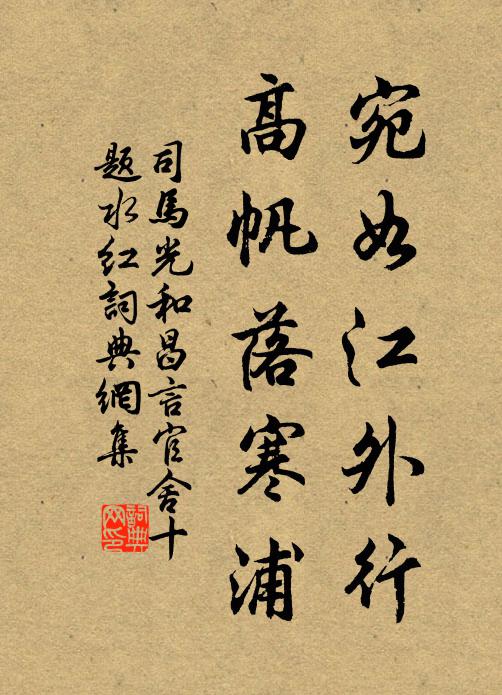 宛如江外行
高帆落寒浦
司馬光和昌言官舍十
题水红詞典網集
詞典网印